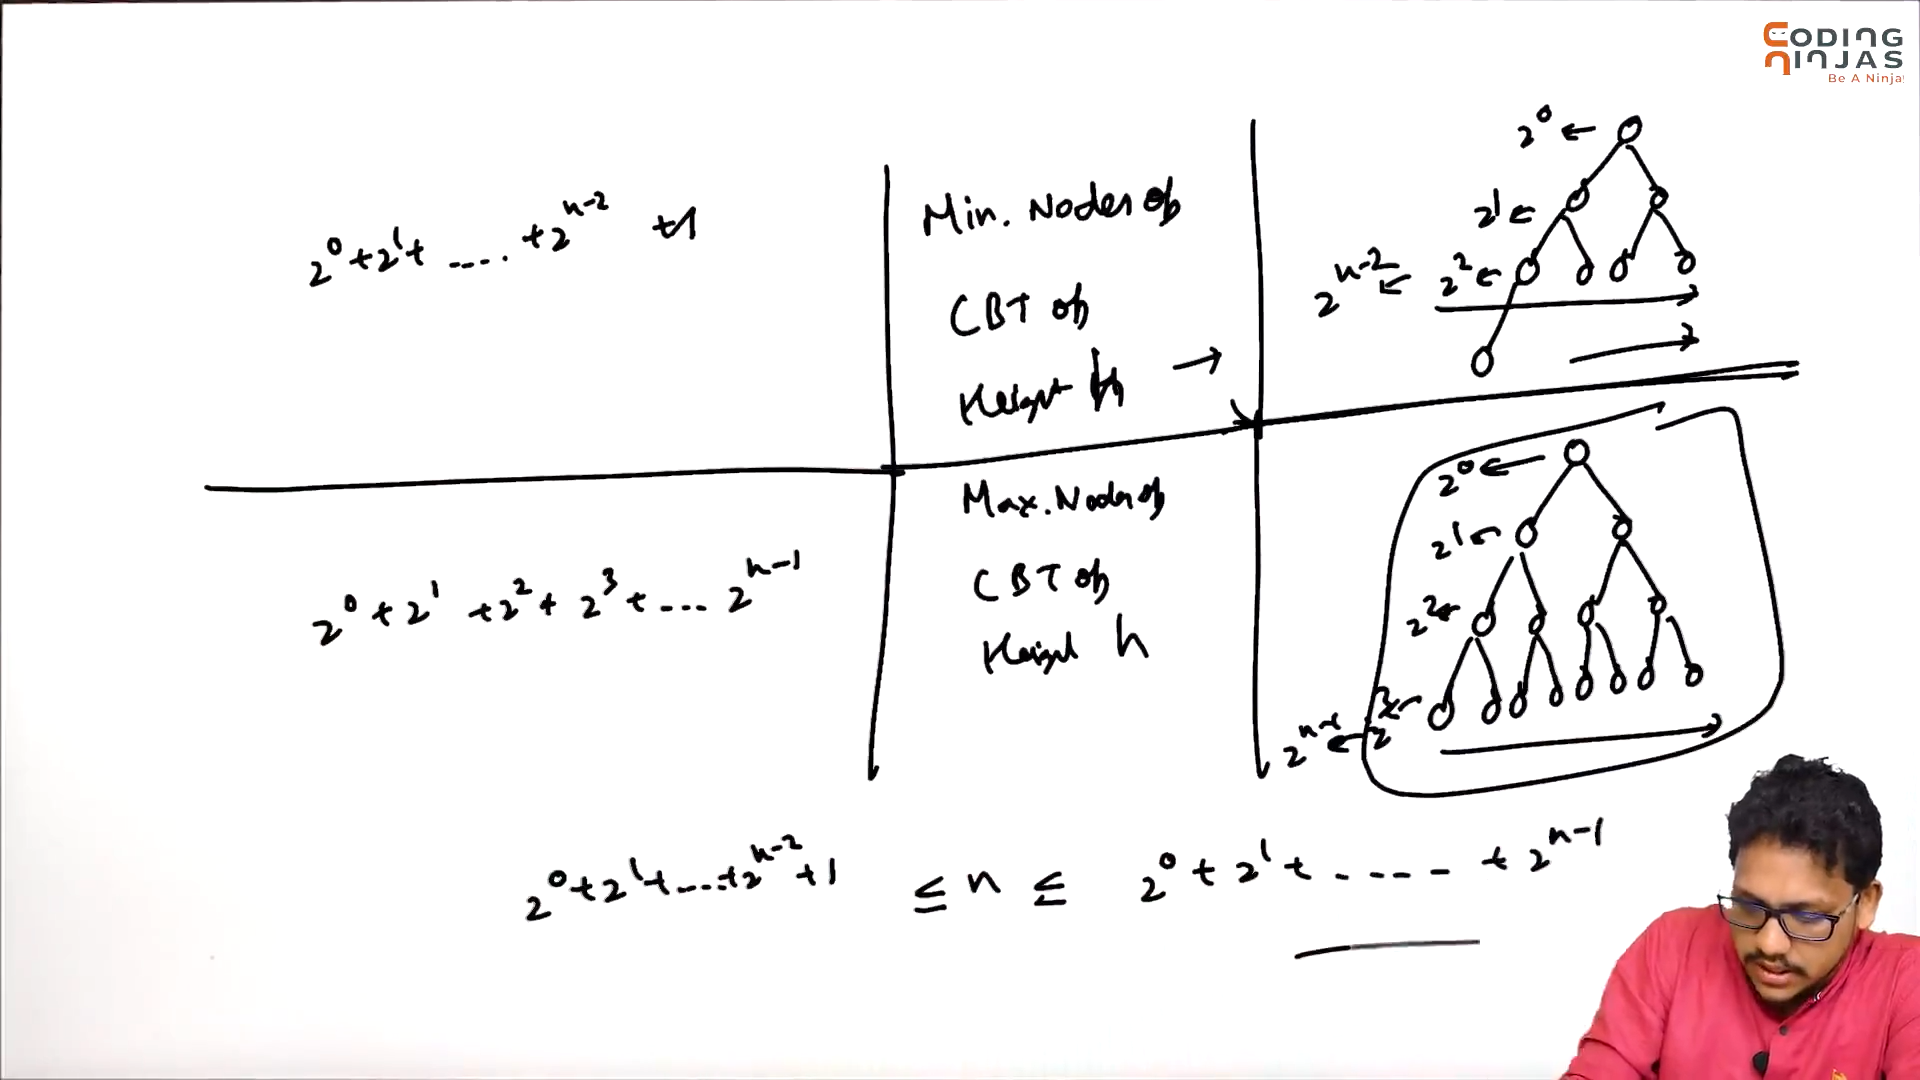 CODING
NINJAS
Be A Ninja
2^0 + 2^1 + .... + 2^{h-2} +1
Min. Nodes of
CBT of
Height h →
2^0 ←
2^1 ←
2^{h-2} ← 2^2 ←
2^0 + 2^1 + 2^2 + 2^3 + ... 2^{h-1}
Max. Nodes of
CBT of
Height h
2^0 ←
2^1 ←
2^2 ←
2^{h-1} ←
2^0 + 2^1 + .... + 2^{h-2} + 1 ≤ n ≤ 2^0 + 2^1 + ..... + 2^{h-1}